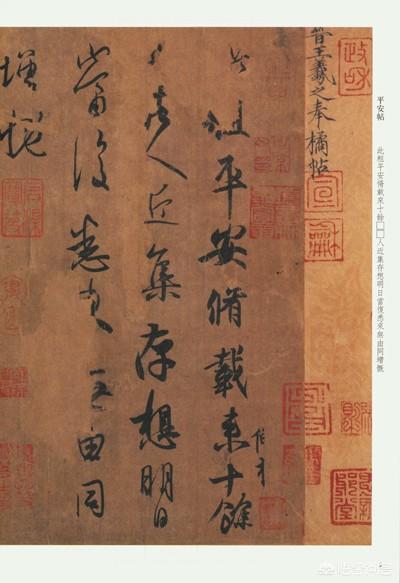 平安帖
此粗平安脩載來十餘□□人近集存想明日當復悉來無由同增慨
晉王羲之奉橘帖
政龢
宣龢
此粗平安脩載來十餘
人近集存想明日
當復悉來无由同
增慨